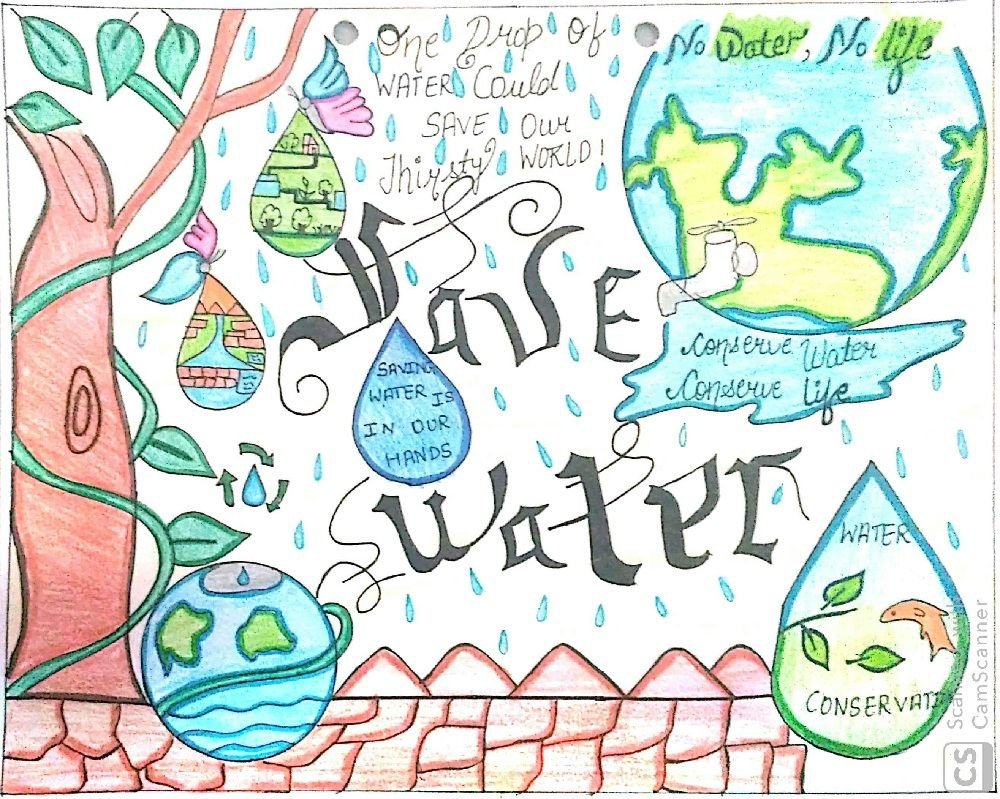 One Drop of
WATER Could
SAVE Our
Thirsty WORLD!
No Water, No life
Save
Conserve Water
Conserve Life
SAVING
WATER IS
IN OUR
HANDS
Water
WATER
CONSERVATI
Scanned with
CamScanner
CS